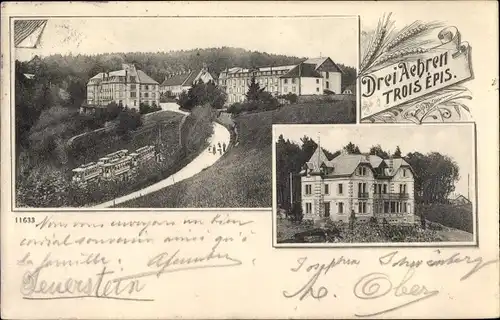 Drei Aehren
TROIS ÉPIS.
11633
Nous vous envoyons un bien
cordial souvenir ainsi qu'à
la famille.
Feuerstein
Josephine
Ober